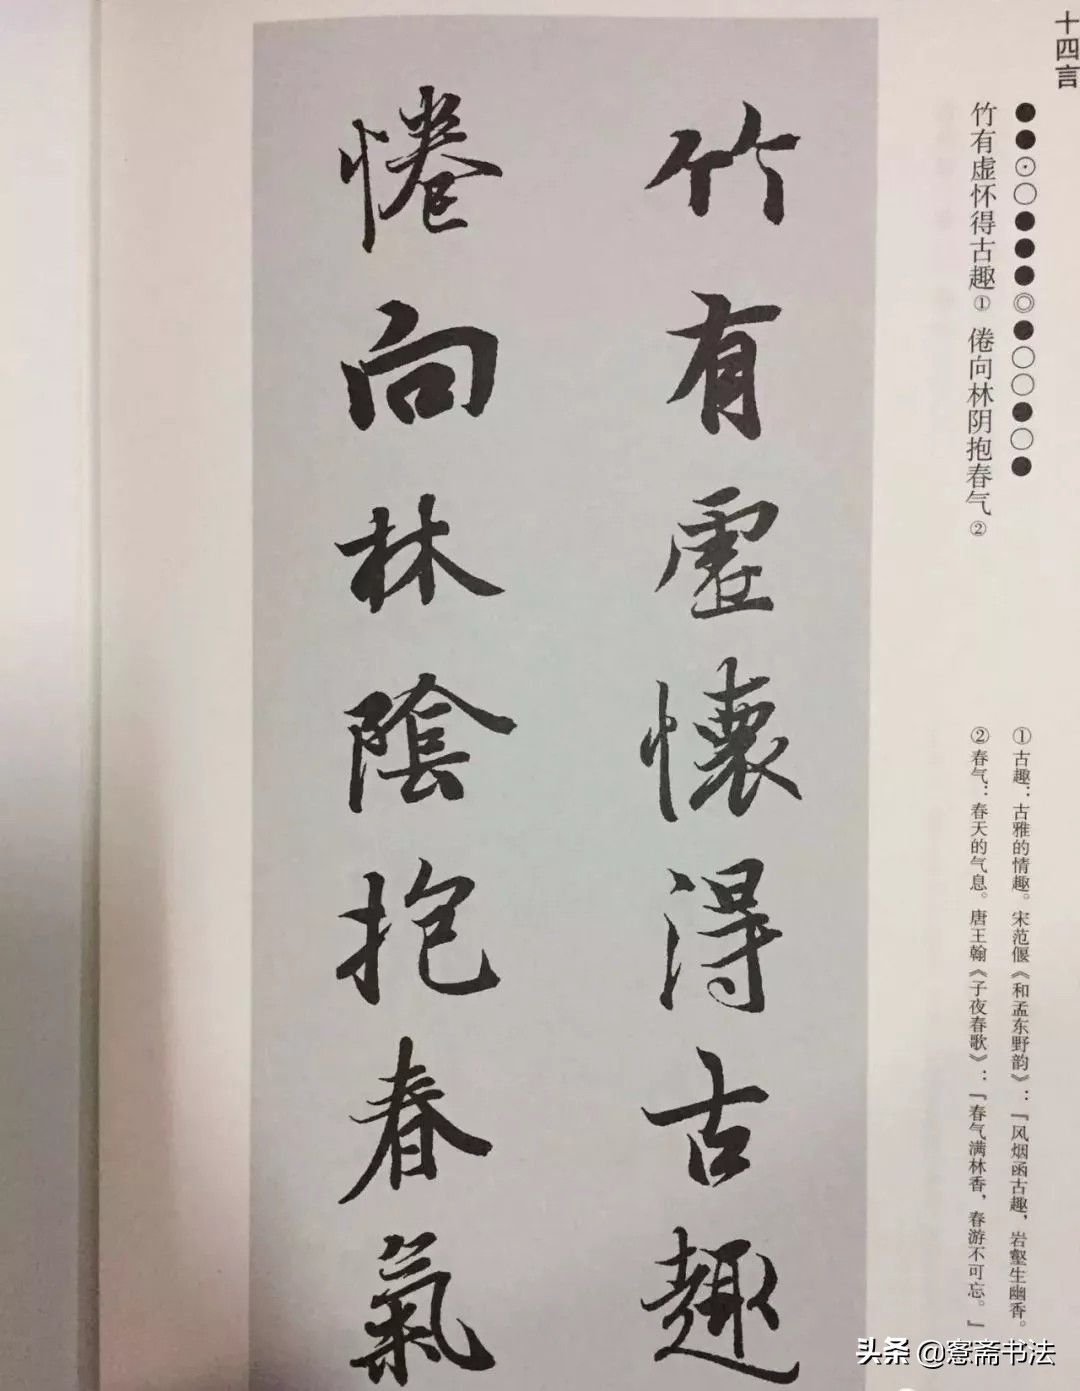 十四言
●●⊙○●●●◎●○○●○●
竹有虚怀得古趣① 倦向林阴抱春气②
①古趣：古雅的情趣。宋范偃《和孟东野韵》：「风烟函古趣，岩壑生幽香。
②春气：春天的气息。唐王翰《子夜春歌》：「春气满林香，春游不可忘。」
竹有虛懷得古趣
惓向林陰抱春氣
头条 @愙斋书法